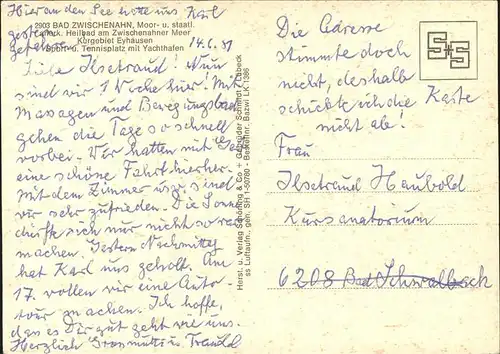 Hier an den See holte uns Karl
gestern
2903 BAD ZWISCHENAHN, Moor- u. staatl.
anerk. Heilbad am Zwischenahner Meer
Kurgebiet Eyhausen
Sport- u. Tennisplatz mit Yachthafen
14.6.81
Liebe Ilsetraud! Nun
sind wir 1 Woche hier! Mit
Massagen und Bewegungsbad
gehen die Tage so schnell
vorbei. Wir hatten mit
eine schöne Fahrt hierher.
Mit dem Zimmer usw. sind
wir sehr zufrieden. Die Sonne
dürfte sich nur nicht so rar
machen. Gestern Nachmittag
hat Karl uns geholt. Am
17. wollen wir eine Auto-
tour machen. Ich hoffe,
das es Dir gut geht viel uns.
Herzlich Grossmutti u. Traudl
Horst. u. Verlag Schöning & Co + Gebrüder Schmidt, Lübeck
ss Luftaufn., geh. SH 1-50780 - Bestellnr. Bazwi LK 1386
S+S
Die Adresse
stimmte doch
nicht, deshalb
schickte ich die Karte
nicht ab!
Frau
Ilsetraud Haubold
Kursanatorium
6208 Bad Schwalbach